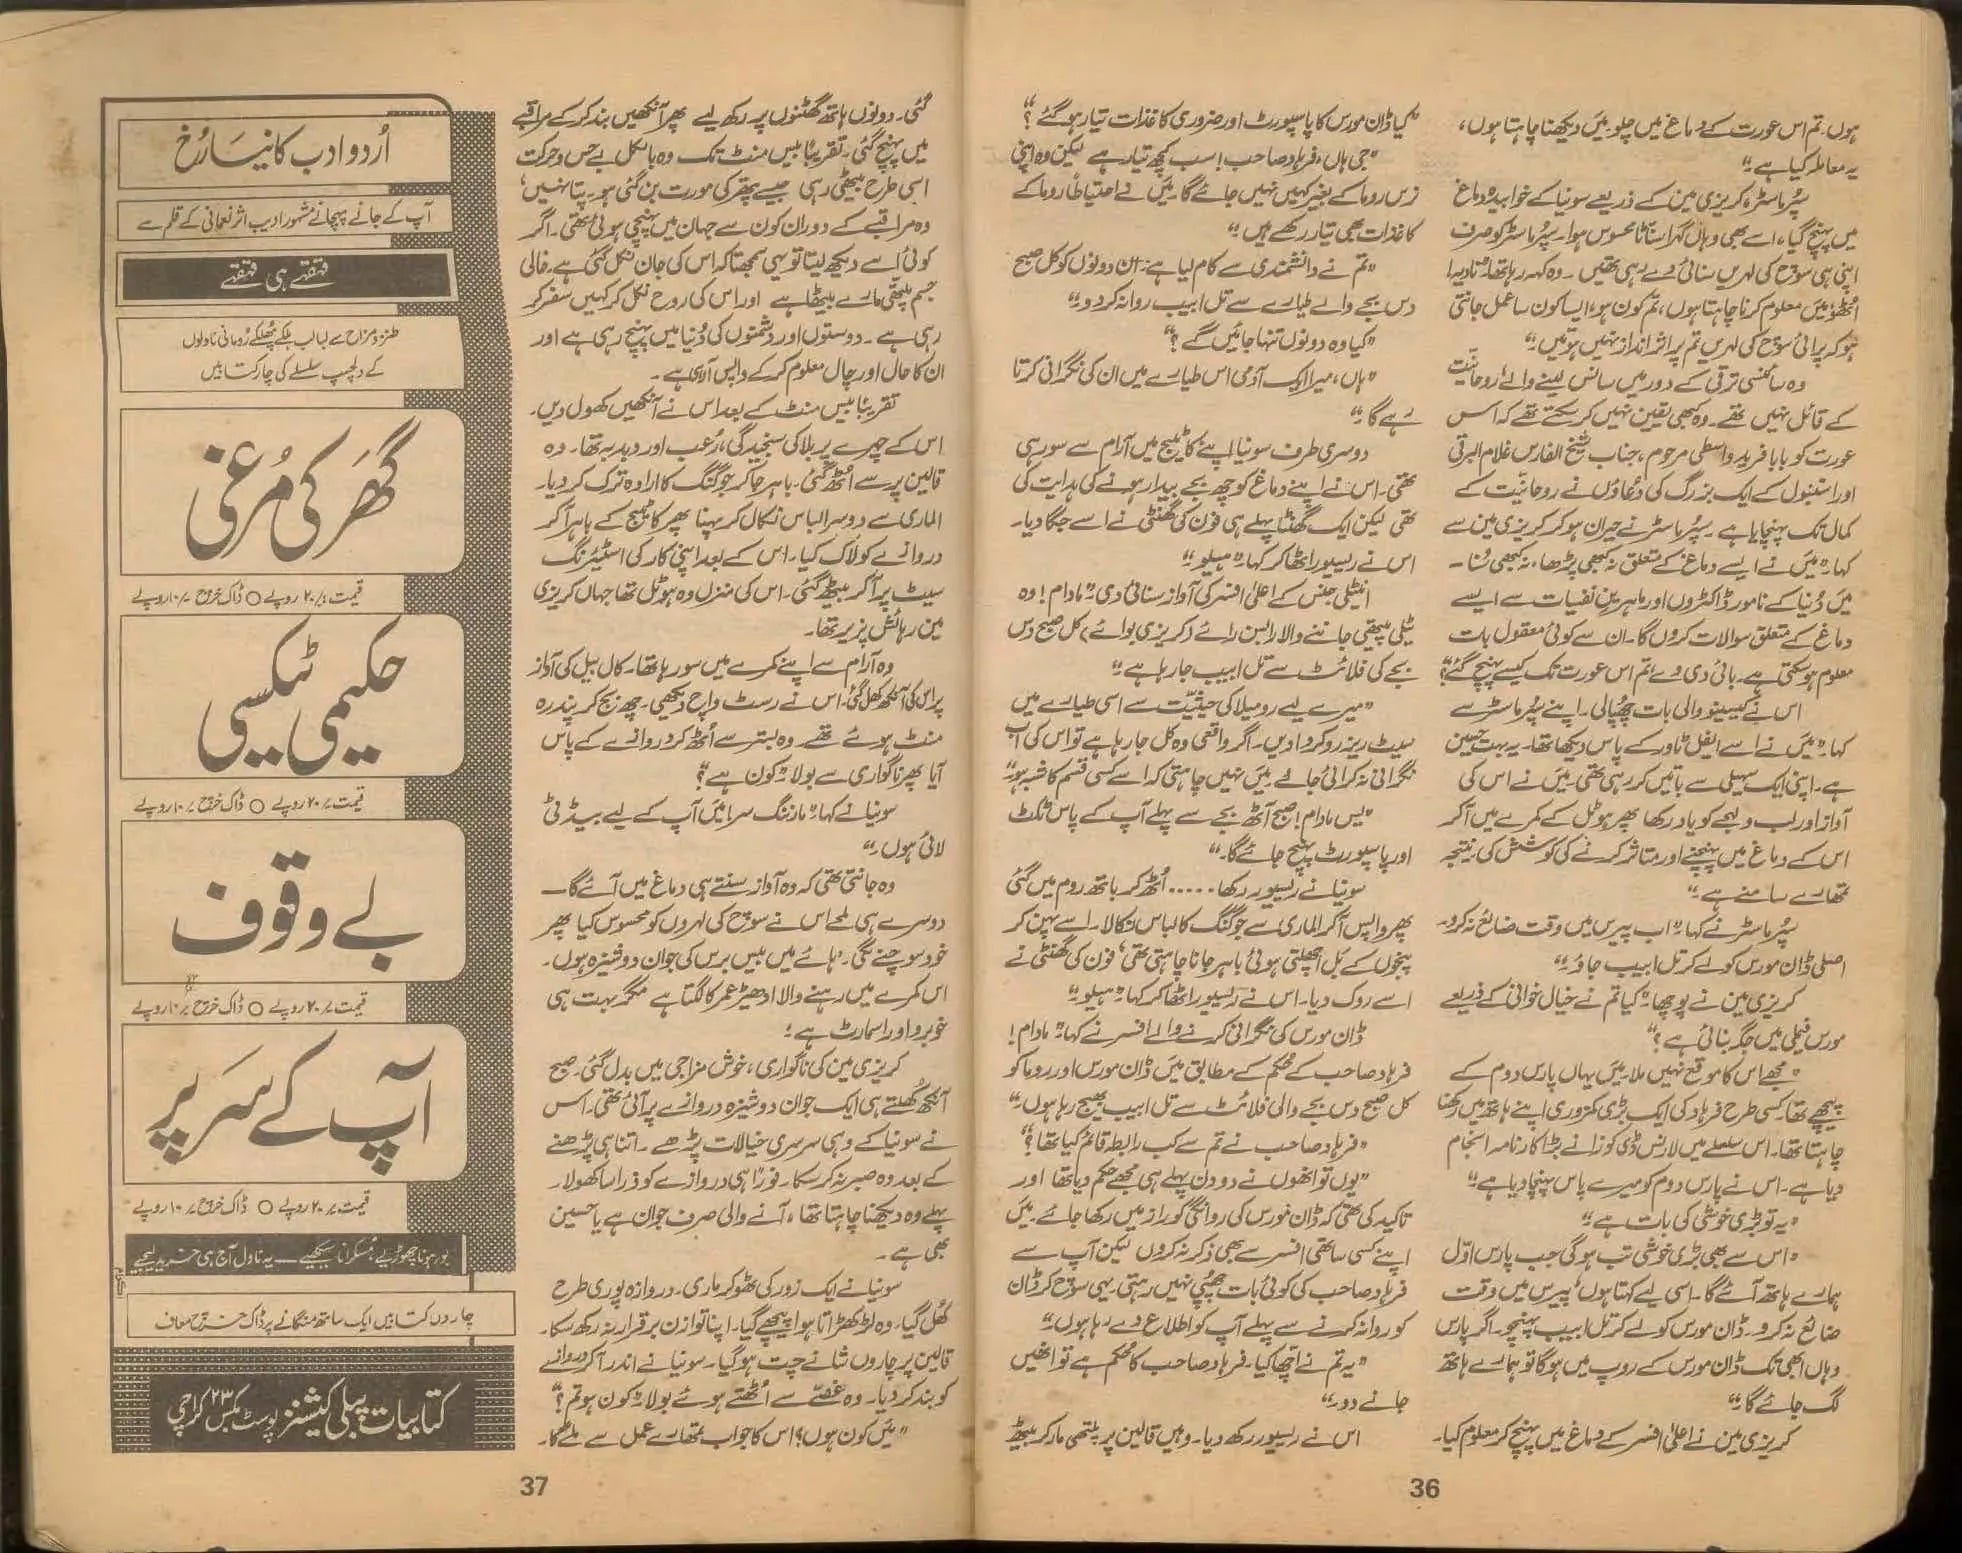 ہوں۔ تم اس عورت کے دماغ میں چلو۔ میں دیکھنا چاہتا ہوں،
یہ معاملہ کیا ہے۔"
سپر ماسٹر، کریزی مین کے ذریعے سونیا کے خوابیدہ دماغ
میں پہنچ گیا، اسے بھی وہاں گہرا سناٹا محسوس ہوا۔ سپر ماسٹر کو صرف
اپنی ہی سوچ کی لہریں سنائی دے رہی تھیں۔ وہ کہہ رہا تھا۔ "نادیدا
اٹھو! میں معلوم کرنا چاہتا ہوں، تم کون ہو، ایسا کون سا عمل جانتی
ہو کہ پرائی سوچ کی لہریں تم پر اثر انداز نہیں ہوتیں۔"
وہ سائنسی ترقی کے دور میں سانس لینے والے، روحانیت
کے قائل نہیں تھے۔ وہ کبھی یقین نہیں کر سکتے تھے کہ اس
عورت کو بابا فرید واسطی مرحوم، جناب شیخ الفارس غلام البرقی
اور استنبول کے ایک بزرگ کی دعاؤں نے روحانیت کے
کمال تک پہنچایا ہے۔ سپر ماسٹر نے حیران ہو کر کریزی مین سے
کہا۔ "میں نے ایسے دماغ کے متعلق نہ کبھی پڑھا، نہ کبھی سنا۔
میں دنیا کے نامور ڈاکٹروں اور ماہرینِ نفسیات سے ایسے
دماغ کے متعلق سوالات کروں گا۔ ان سے کوئی معقول بات
معلوم ہو سکتی ہے۔ بائی دی وے، تم اس عورت تک کیسے پہنچ گئے؟"
اس نے کیسینو والی بات چھپالی۔ اپنے سپر ماسٹر سے
کہا۔ "میں نے اسے ایفل ٹاور کے پاس دیکھا تھا۔ یہ بہت حسین
ہے۔ اپنی ایک سہیلی سے باتیں کر رہی تھی۔ میں نے اس کی
آواز اور لب و لہجے کو یاد رکھا پھر ہوٹل کے کمرے میں آکر
اس کے دماغ میں پہنچنے اور متاثر کرنے کی کوشش کی۔ نتیجہ
تمہارے سامنے ہے۔"
سپر ماسٹر نے کہا۔ "اب پیرس میں وقت ضائع نہ کرو۔
اصلی ڈان مورس کو لے کر تل ابیب جاؤ۔"
کریزی مین نے پوچھا۔ "کیا تم نے خیال خوانی کے ذریعے
مورس فیملی میں جگہ بنائی ہے؟"
"مجھے اس کا موقع نہیں ملا۔ میں یہاں پارس دوم کے
پیچھے تھا۔ کسی طرح فرہاد کی ایک بڑی کمزوری اپنے ہاتھ میں رکھنا
چاہتا تھا۔ اس سلسلے میں لارنس ڈی کوزا نے بڑا کارنامہ انجام
دیا ہے۔ اس نے پارس دوم کو میرے پاس پہنچا دیا ہے۔"
"یہ تو بڑی خوشی کی بات ہے۔"
"اس سے بھی بڑی خوشی تب ہوگی جب پارس اوّل
ہمارے ہاتھ آئے گا۔ اسی لیے کہتا ہوں، پیرس میں وقت
ضائع نہ کرو۔ ڈان مورس کو لے کر تل ابیب پہنچو۔ اگر پارس
وہاں ابھی تک ڈان مورس کے روپ میں ہوگا تو ہمارے ہاتھ
لگ جائے گا۔"
کریزی مین نے اعلیٰ افسر کے دماغ میں پہنچ کر معلوم کیا۔
36
"کیا ڈان مورس کا پاسپورٹ اور ضروری کاغذات تیار ہو گئے؟"
"جی ہاں، فرہاد صاحب! سب کچھ تیار ہے لیکن وہ اپنی
نرس روما کے بغیر کہیں نہیں جائے گا۔ میں نے احتیاطاً روما کے
کاغذات بھی تیار رکھے ہیں۔"
"تم نے دانشمندی سے کام لیا ہے۔ ان دونوں کو کل صبح
دس بجے والے طیارے سے تل ابیب روانہ کر دو۔"
"کیا وہ دونوں تنہا جائیں گے؟"
"ہاں، میرا ایک آدمی اس طیارے میں ان کی نگرانی کرتا
رہے گا۔"
دوسری طرف سونیا اپنے کاٹیج میں آرام سے سو رہی
تھی۔ اس نے اپنے دماغ کو چھ بجے بیدار ہونے کی ہدایت کی
تھی لیکن ایک گھنٹا پہلے ہی فون کی گھنٹی نے اسے جگا دیا۔
اس نے ریسیور اٹھا کر کہا۔ "ہیلو۔"
انٹیلی جنس کے اعلیٰ افسر کی آواز سنائی دی۔ "مادام! وہ
ٹیلی پیتھی جاننے والا رابسن رائے (کریزی بوائے) کل صبح دس
بجے کی فلائٹ سے تل ابیب جا رہا ہے۔"
"میرے لیے رومیلا کی حیثیت سے اسی طیارے میں
سیٹ ریزرو کرا دیں۔ اگر واقعی وہ کل جا رہا ہے تو اس کی اب
نگرانی نہ کرائی جائے۔ میں نہیں چاہتی کہ اسے کسی قسم کا شبہ ہو۔"
"یس مادام! صبح آٹھ بجے سے پہلے آپ کے پاس ٹکٹ
اور پاسپورٹ پہنچ جائے گا۔"
سونیا نے ریسیور رکھا..... اٹھ کر باتھ روم میں گئی
پھر واپس آکر الماری سے جوگنگ کا لباس نکالا۔ اسے پہن کر
پنجوں کے بل اچھلتی ہوئی باہر جانا چاہتی تھی، فون کی گھنٹی نے
اسے روک دیا۔ اس نے ریسیور اٹھا کر کہا۔ "ہیلو۔"
ڈان مورس کی نگرانی کرنے والے افسر نے کہا۔ "مادام!
فرہاد صاحب کے حکم کے مطابق میں ڈان مورس اور روما کو
کل صبح دس بجے والی فلائٹ سے تل ابیب بھیج رہا ہوں۔"
"فرہاد صاحب نے تم سے کب رابطہ قائم کیا تھا؟"
"یوں تو انھوں نے دو دن پہلے ہی مجھے حکم دیا تھا اور
تاکید کی تھی کہ ڈان مورس کی روانگی کو راز میں رکھا جائے۔ میں
اپنے کسی ساتھی افسر سے بھی ذکر نہ کروں لیکن آپ سے
فرہاد صاحب کی کوئی بات چھپی نہیں رہتی۔ یہی سوچ کر ڈان
کو روانہ کرنے سے پہلے آپ کو اطلاع دے رہا ہوں۔"
"یہ تم نے اچھا کیا۔ فرہاد صاحب کا حکم ہے تو انھیں
جانے دو۔"
اس نے ریسیور رکھ دیا۔ وہیں قالین پر پلتھی مار کر بیٹھ
گئی۔ دونوں ہاتھ گھٹنوں پر رکھ لیے پھر آنکھیں بند کر کے مراقبے
میں پہنچ گئی۔ تقریباً بیس منٹ تک وہ بالکل بے حس و حرکت
اسی طرح بیٹھی رہی جیسے پتھر کی مورت بن گئی ہو۔ پتا نہیں،
وہ مراقبے کے دوران کون سے جہان میں پہنچی ہوئی تھی۔ اگر
کوئی اسے دیکھ لیتا تو یہی سمجھتا کہ اس کی جان نکل گئی ہے۔ خالی
جسم پلتھی مارے بیٹھا ہے اور اس کی روح نکل کر کہیں سفر کر
رہی ہے۔ دوستوں اور دشمنوں کی دنیا میں پہنچ رہی ہے اور
ان کا حال اور چال معلوم کر کے واپس آ رہی ہے۔
تقریباً بیس منٹ کے بعد اس نے آنکھیں کھول دیں۔
اس کے چہرے پر بلا کی سنجیدگی، رعب اور دبدبہ تھا۔ وہ
قالین پر سے اٹھ گئی۔ باہر جا کر جوگنگ کا ارادہ ترک کر دیا۔
الماری سے دوسرا لباس نکال کر پہنا پھر کاٹیج کے باہر آکر
دروازے کو لاک کیا۔ اس کے بعد اپنی کار کی اسٹیئرنگ
سیٹ پر آکر بیٹھ گئی۔ اس کی منزل وہ ہوٹل تھا جہاں کریزی
مین رہائش پزیر تھا۔
وہ آرام سے اپنے کمرے میں سو رہا تھا۔ کال بیل کی آواز
پر اس کی آنکھ کھل گئی۔ اس نے رسٹ واچ دیکھی۔ چھ بج کر پندرہ
منٹ ہوئے تھے۔ وہ بستر سے اٹھ کر دروازے کے پاس
آیا پھر ناگواری سے بولا۔ "کون ہے؟"
سونیا نے کہا۔ "مارننگ سر! میں آپ کے لیے بیڈ ٹی
لائی ہوں۔"
وہ جانتی تھی کہ وہ آواز سنتے ہی دماغ میں آئے گا۔
دوسرے ہی لمحے اس نے سوچ کی لہروں کو محسوس کیا پھر
خود سوچنے لگی۔ 'ہائے میں بیس برس کی جوان دوشیزہ ہوں۔
اس کمرے میں رہنے والا ادھیڑ عمر کا لگتا ہے مگر بہت ہی
خوبرو اور اسمارٹ ہے۔'
کریزی مین کی ناگواری، خوش مزاجی میں بدل گئی۔ صبح
آنکھ کھلتے ہی ایک جوان دوشیزہ دروازے پر آئی تھی۔ اس
نے سونیا کے وہی سرسری خیالات پڑھے۔ اتنا ہی پڑھنے
کے بعد وہ صبر نہ کر سکا۔ فوراً ہی دروازے کو ذرا سا کھولا۔
پہلے وہ دیکھنا چاہتا تھا، آنے والی صرف جوان ہے یا حسین
بھی ہے۔
سونیا نے ایک زور کی ٹھوکر ماری۔ دروازہ پوری طرح
کھل گیا۔ وہ لڑکھڑاتا ہوا پیچھے گیا۔ اپنا توازن برقرار نہ رکھ سکا۔
قالین پر چاروں شانے چت ہو گیا۔ سونیا نے اندر آکر دروازے
کو بند کر دیا۔ وہ غصے سے اٹھتے ہوئے بولا۔ "کون ہو تم؟"
"میں کون ہوں؟ اس کا جواب تمہارے عمل سے ملے گا۔
37
اردو ادب کا نیا رُخ
آپ کے جانے پہچانے مشہور ادیب اثر نعمانی کے قلم سے
قہقہے ہی قہقہے
طنز و مزاح سے لبالب ہلکے پھلکے رومانی ناولوں
کے دلچسپ سلسلے کی چار کتابیں
گھر کی مرغی
قیمت ۲۰/- روپے ○ ڈاک خرچ ۱۰/- روپے
حکیمی ٹیکسی
قیمت ۲۰/- روپے ○ ڈاک خرچ ۱۰/- روپے
بے وقوف
قیمت ۲۰/- روپے ○ ڈاک خرچ ۱۰/- روپے
آپ کے سر پر
قیمت ۲۰/- روپے ○ ڈاک خرچ ۱۰/- روپے
بور ہونا چھوڑیے، مسکرانا سیکھیے — یہ ناول آج ہی خرید لیجیے
چاروں کتابیں ایک ساتھ منگانے پر ڈاک خرچ معاف
کتابیات پبلی کیشنز پوسٹ بکس ۲۳ کراچی